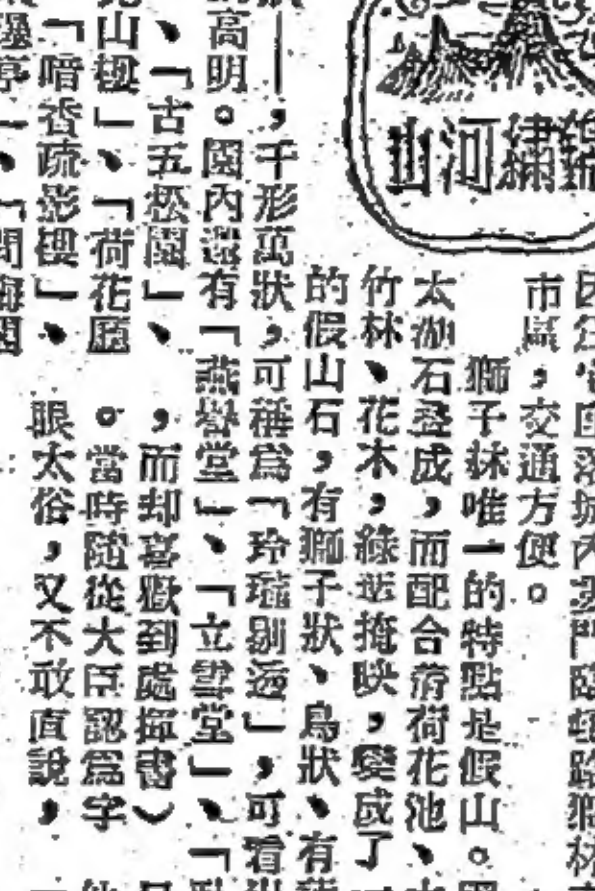 錦繡河山
市區，交通方便。
獅子林唯一的特點是假山。
太湖石疊成，而配合着荷花池、
竹林、花木，綠掩映，變成了
的假山石，有獅子狀、鳥狀、有
狀——，千形萬狀，可稱爲「玲瓏剔透」，可看
高明。園內還有「燕譽堂」、「立雪堂」、「
、「古五松園」、
山樓」、「荷花廳
「暗香疏影樓」、
亭」、「問梅閣
，而却喜歡到處揮書）
。當時隨從大臣認爲字
眼太俗，又不敢直說，